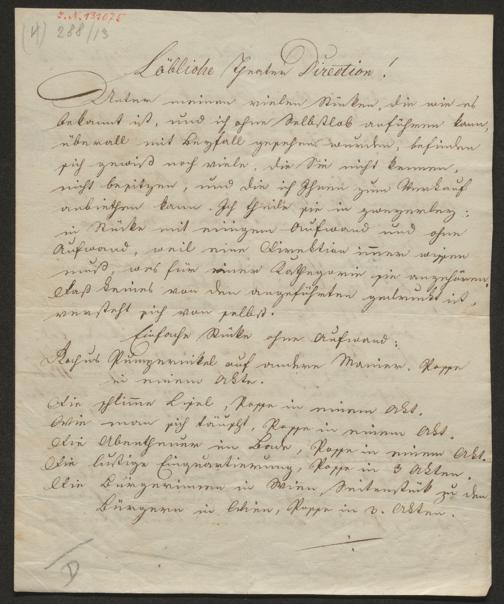 I.N. 131075
(H) 288/13
Löbliche Theater Direction!
Unter meinen vielen Stücken, die wie es
bekannt ist, und ich ohne Selbstlob anführen kann,
überall mit Beyfall gesehen wurden, befinden
sich gewiß noch viele, die Sie nicht kennen,
nicht besitzen, und die ich Ihnen zum Verkauf
anbiethen kann. Ich theile sie in zweyerley:
in Stücke mit einigem Aufwand und ohne
Aufwand, weil eine Direktion immer wissen
muß, was für einer Kathegorie sie angehören.
Daß keines von den angeführten gedruckt ist,
versteht sich von selbst.
Einfache Stücke ohne Aufwand:
Rochus Pumpernikel auf andere Manier. Posse
in einem Akte.
Die schlimme Lisel, Posse in einem Akt.
Wie man sich täuscht, Posse in einem Akt.
Die Abentheuer im Bade, Posse in einem Akt.
Die lustige Einquartierung, Posse in 3 Akten.
Die Bürgerinnen in Wien, Seitenstück zu den
Bürgern in Wien, Posse in 3. Akten.
D